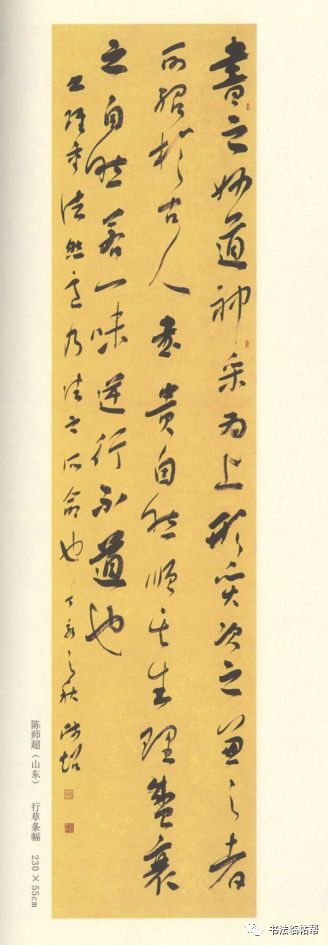 書之妙道神采為上形質次之兼之者
可紹於古人書貴自然順其生理盛衰
之自然若一味逆行不道也
书雖重法然意乃法之所命也丁亥之秋師超
陈师超（山东） 行草条幅 230×55cm
书法临帖帮